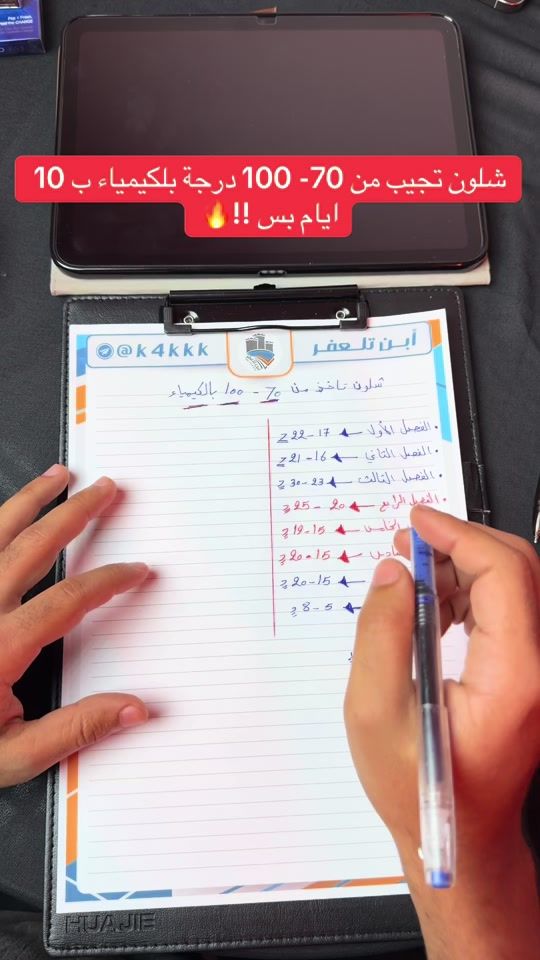 شلون تجيب من 70- 100 درجة بلكيمياء ب 10
ايام بس !!🔥
@k4kkk
أبن تلعفر
شلون تاخذ من 70 - 100 بالكيمياء
• الفصل الأول 17-22 ج
• الفصل الثاني 16-21 ج
• الفصل الثالث 23-30 ج
• الفصل الرابع 20 - 25 ج
15-19 ج
15-20 ج
15-20 ج
5-8 ج
HUAJIE